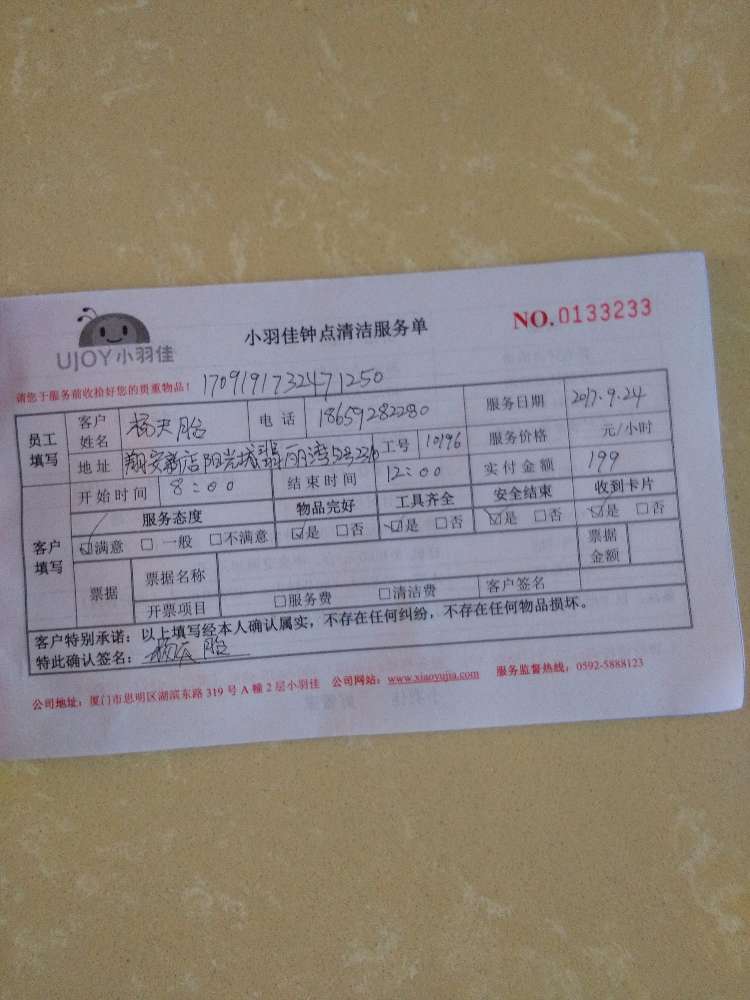 UJOY小羽佳
小羽佳钟点清洁服务单
NO.0133233
请您于服务前收拾好您的贵重物品! 1709191732471250
员工填写 客户姓名 杨天胎 电话 18659282280 服务日期 2017.9.24
地址 翔安新店阳光城翡丽湾 工号 10196 服务价格 元/小时
开始时间 8:00 结束时间 12:00 实付金额 199
客户填写 服务态度 物品完好 工具齐全 安全结束 收到卡片
☑满意 □一般 □不满意 ☑是 □否 ☑是 □否 ☑是 □否 ☑是 □否
票据 票据名称 票据金额
开票项目 □服务费 □清洁费 客户签名
客户特别承诺:以上填写经本人确认属实,不存在任何纠纷,不存在任何物品损坏。
特此确认签名:
公司地址:厦门市思明区湖滨东路319号A幢2层小羽佳 公司网站:www.xiaoyujia.com 服务监督热线:0592-5888123